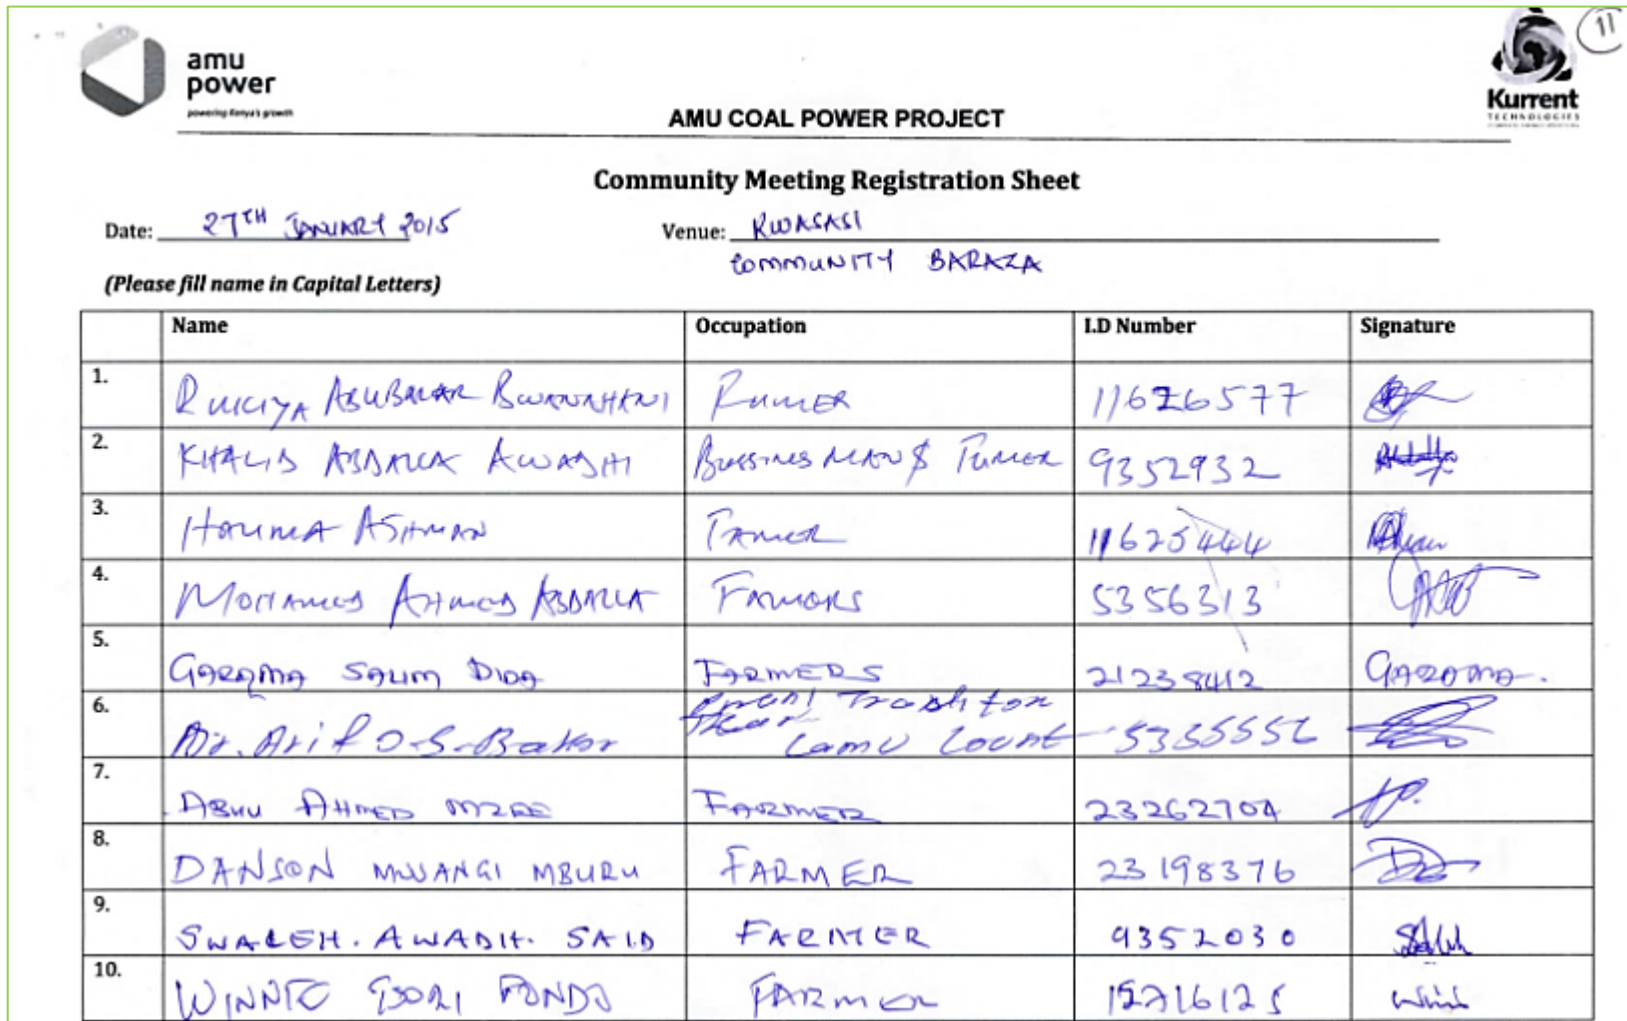 11
amu
power
powering Kenya's growth
Kurrent
TECHNOLOGIES
AMU COAL POWER PROJECT
Community Meeting Registration Sheet
Date: 27TH JANUARY 2015 Venue: KWASASI
COMMUNITY BARAZA
(Please fill name in Capital Letters)
Name Occupation I.D Number Signature
1. RUKIYA ABUBAKAR BWANAHANI 11626577
2. KHALID ABDALLA AWADHI BUSSINES MAN $ 9352932
3. HALIMA ASHMAN FAMER 11625444
4. MOHAMED AHMED ABDALLA FAMORS 5356313
5. GARAMA SALIM DIDA FARMERS 21238412 GARAMA.
6. Arif O.S. Bakar Lamu Count 5355556
7. ABHU AHMED MZEE FARMER 23262704
8. DANSON MWANGI MBURU FARMER 23198376
9. SWALEH. AWADH. SAID FARMER 9352030
10. WINNIE FONDO FARMER 12716125